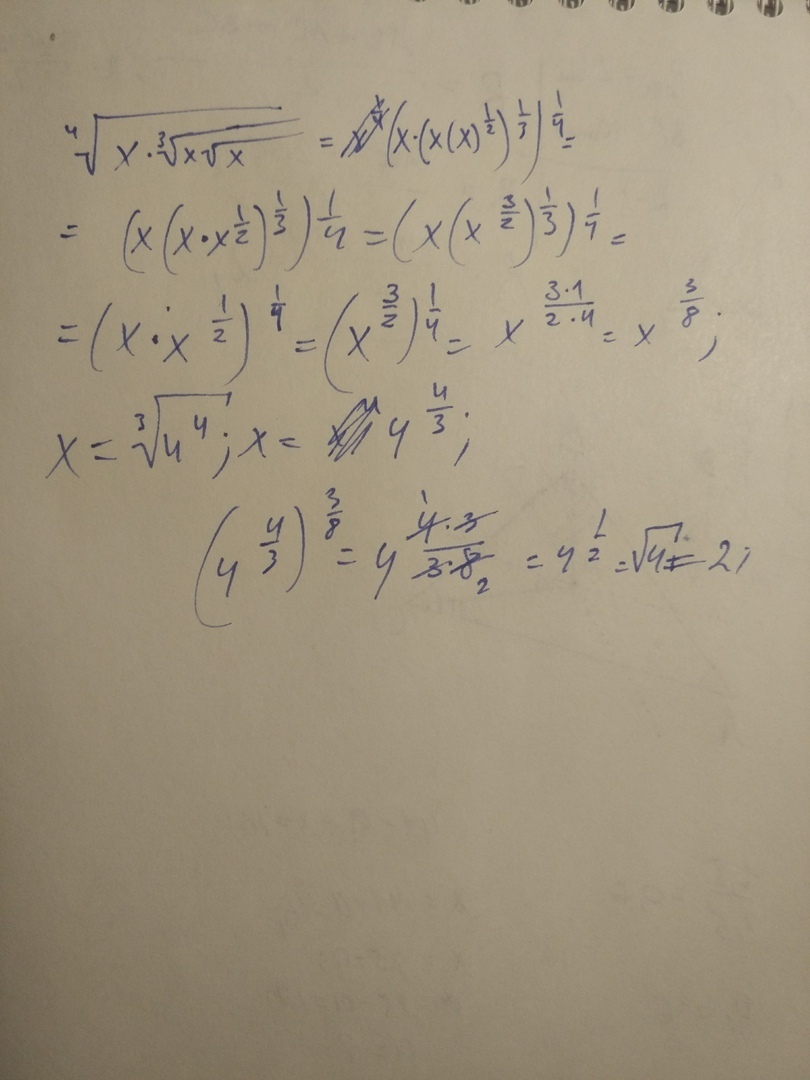 ⁴√(x·³√(x√x)) = (x·(x(x)^(1/2))^(1/3))^(1/4) =
= (x(x·x^(1/2))^(1/3))^(1/4) = (x(x^(3/2))^(1/3))^(1/4) =
= (x·x^(1/2))^(1/4) = (x^(3/2))^(1/4) = x^((3·1)/(2·4)) = x^(3/8);
x = ³√(4^4); x = 4^(4/3);
(4^(4/3))^(3/8) = 4^((4·3)/(3·8)) = 4^(1/2) = √4 = 2;